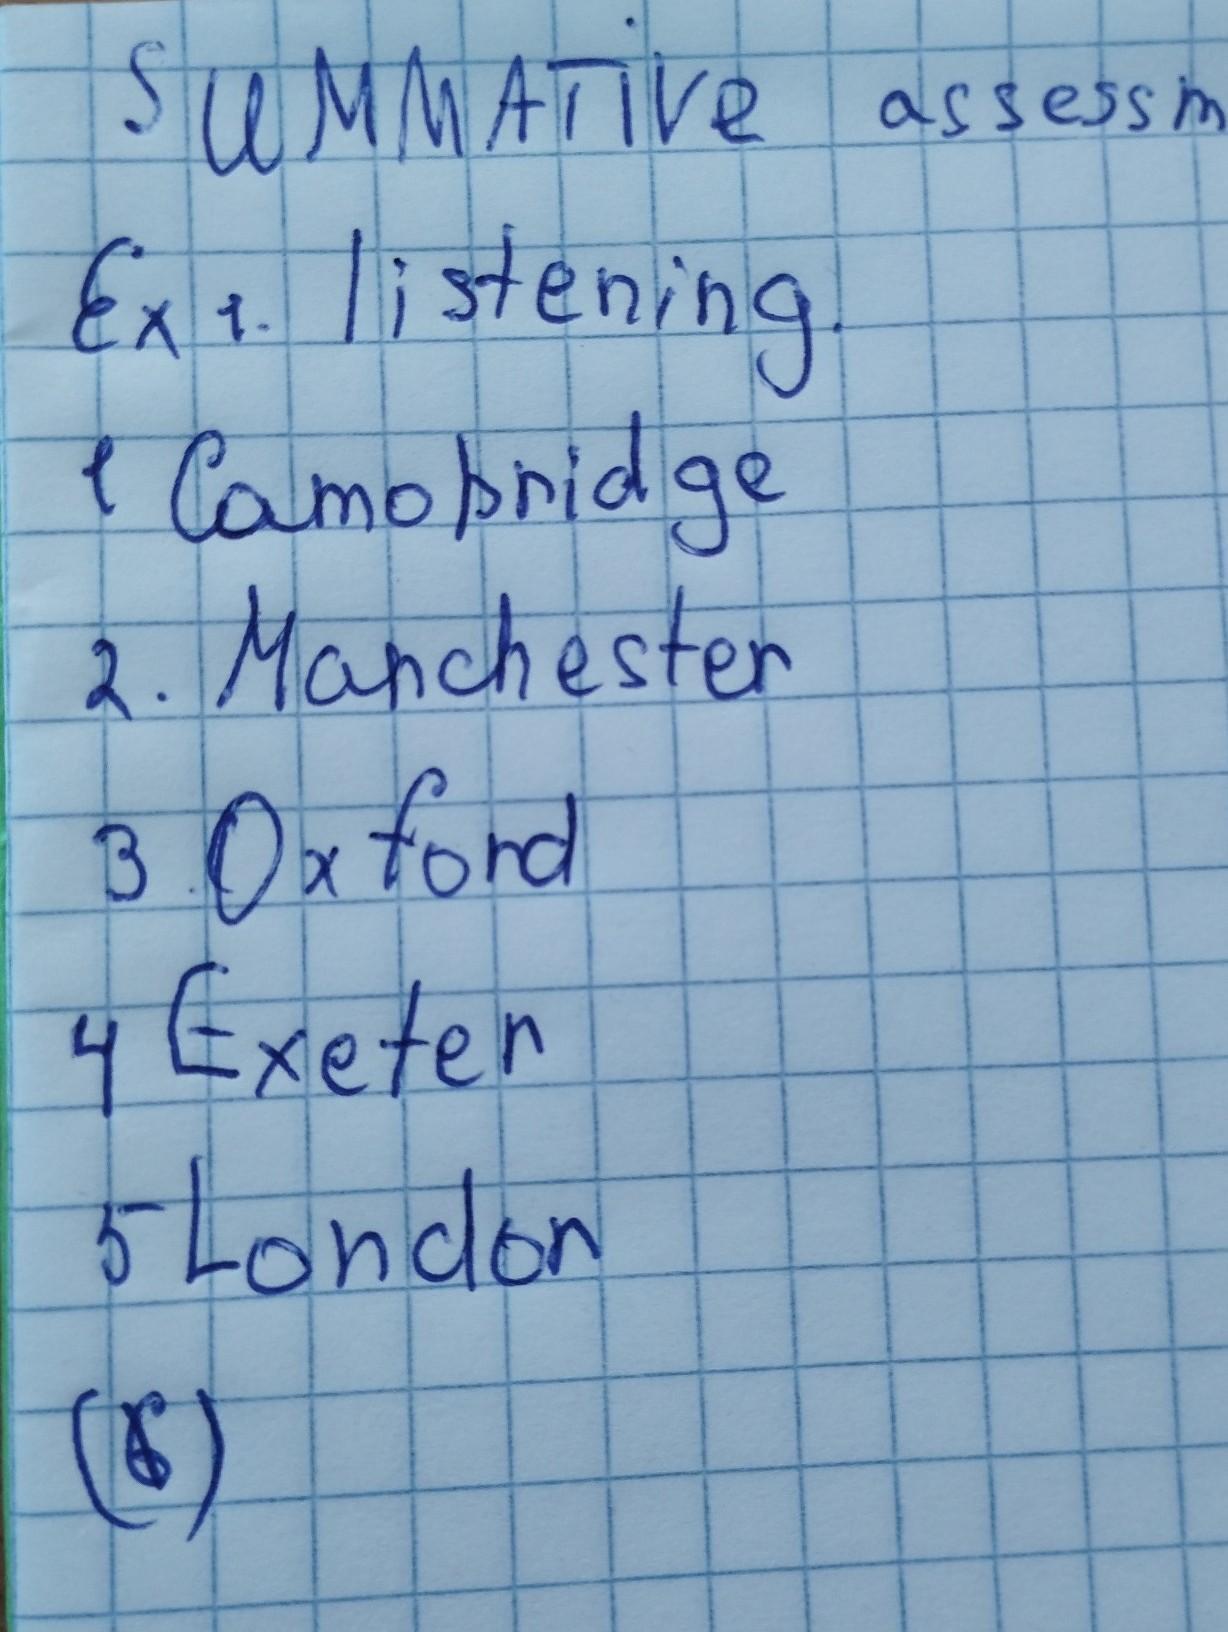 SUMMATIVE assessm
Ex 1. listening.
1 Camobridge
2. Manchester
3. Oxford
4 Exeter
5 London
(6)